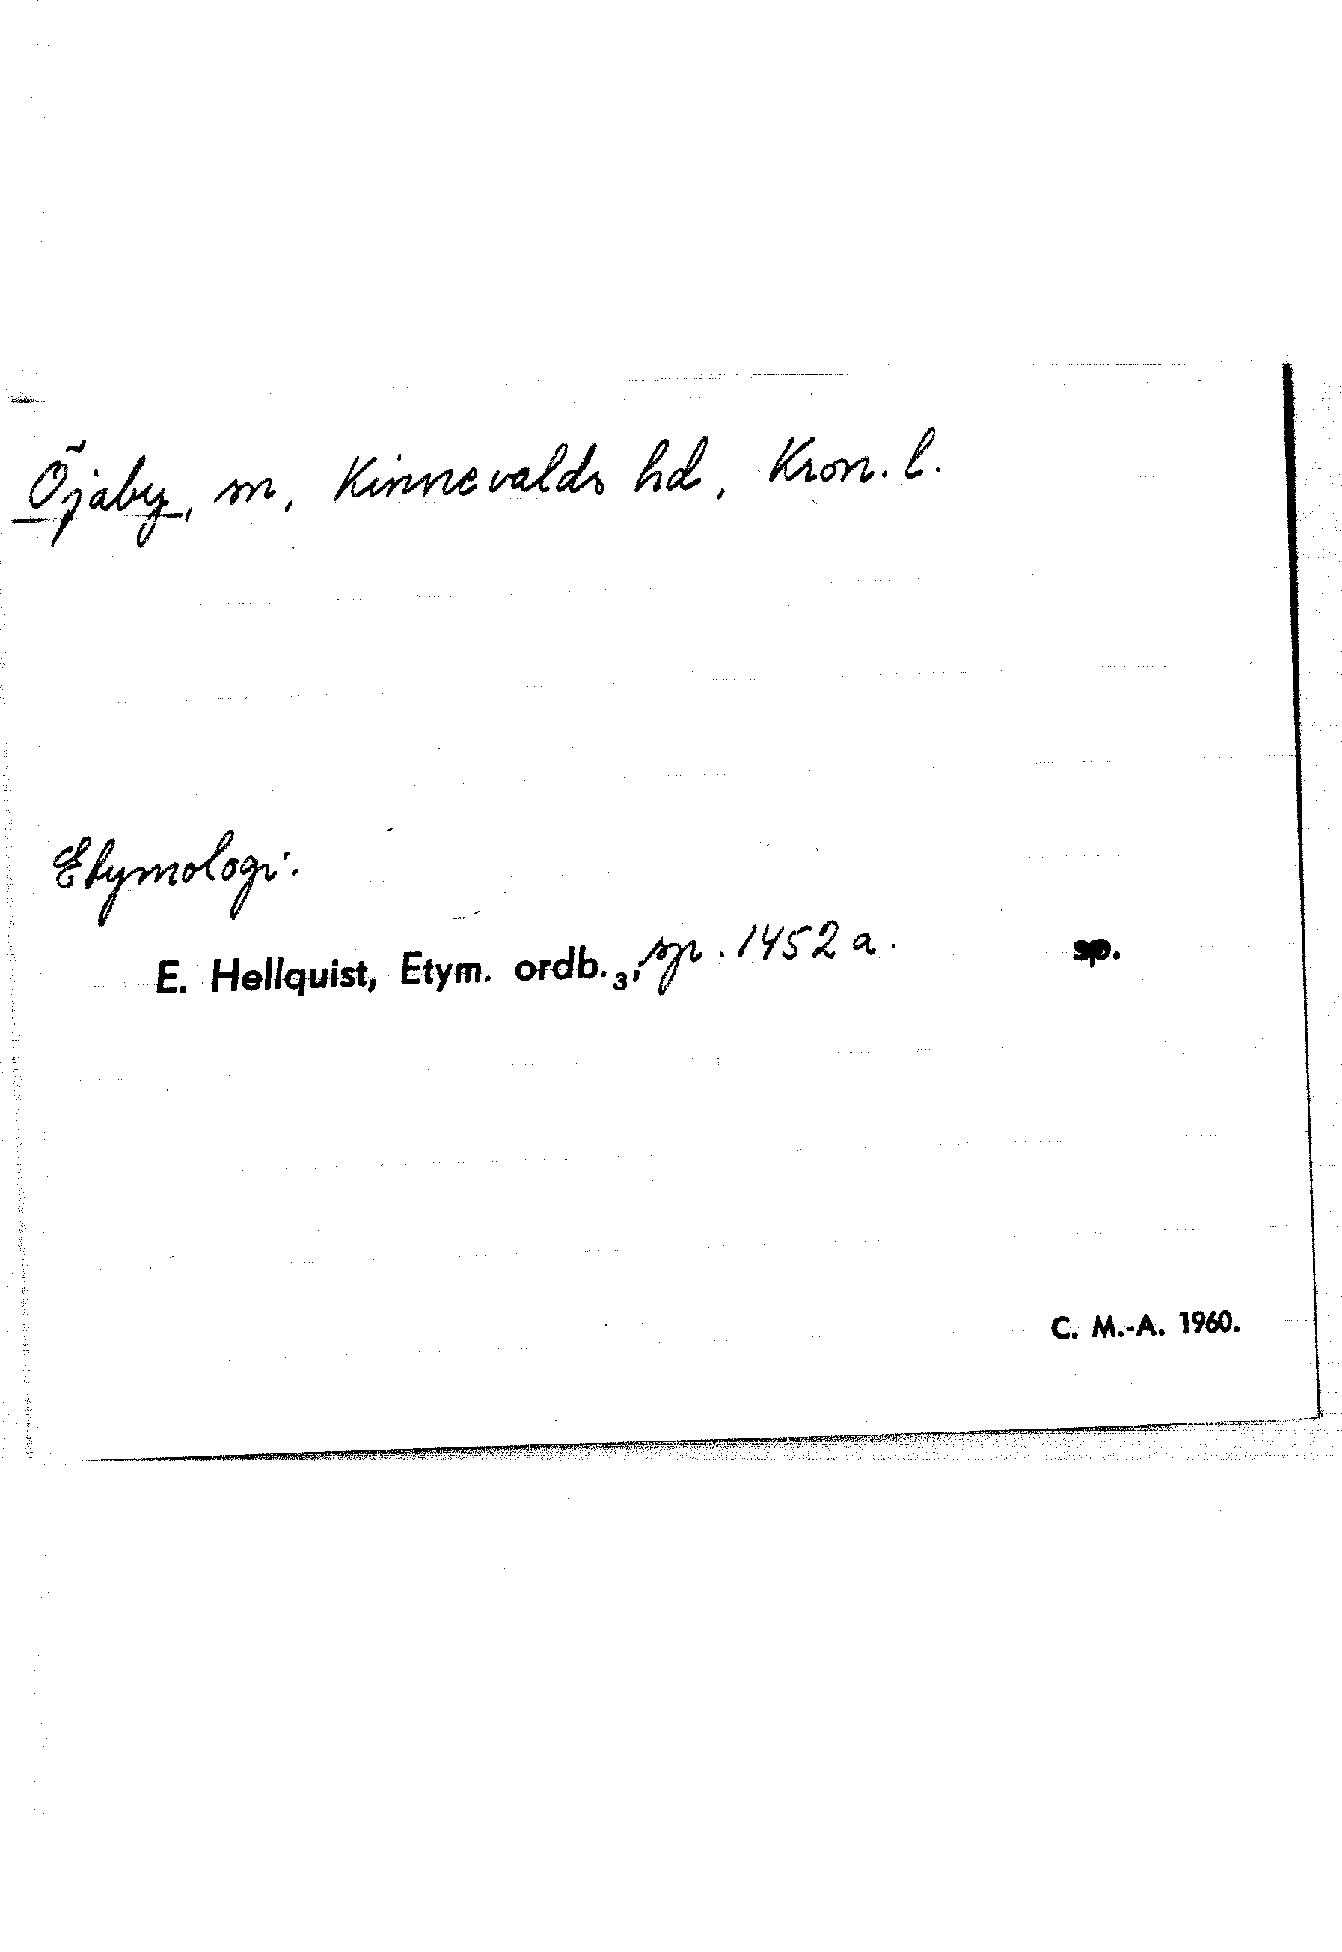 Öjaby, sn, Kinnevalds hd, Kron. l.
Etymologi:
E. Hellquist, Etym. ordb.₃, sp. 1452 a. sp.
C. M.-A. 1960.